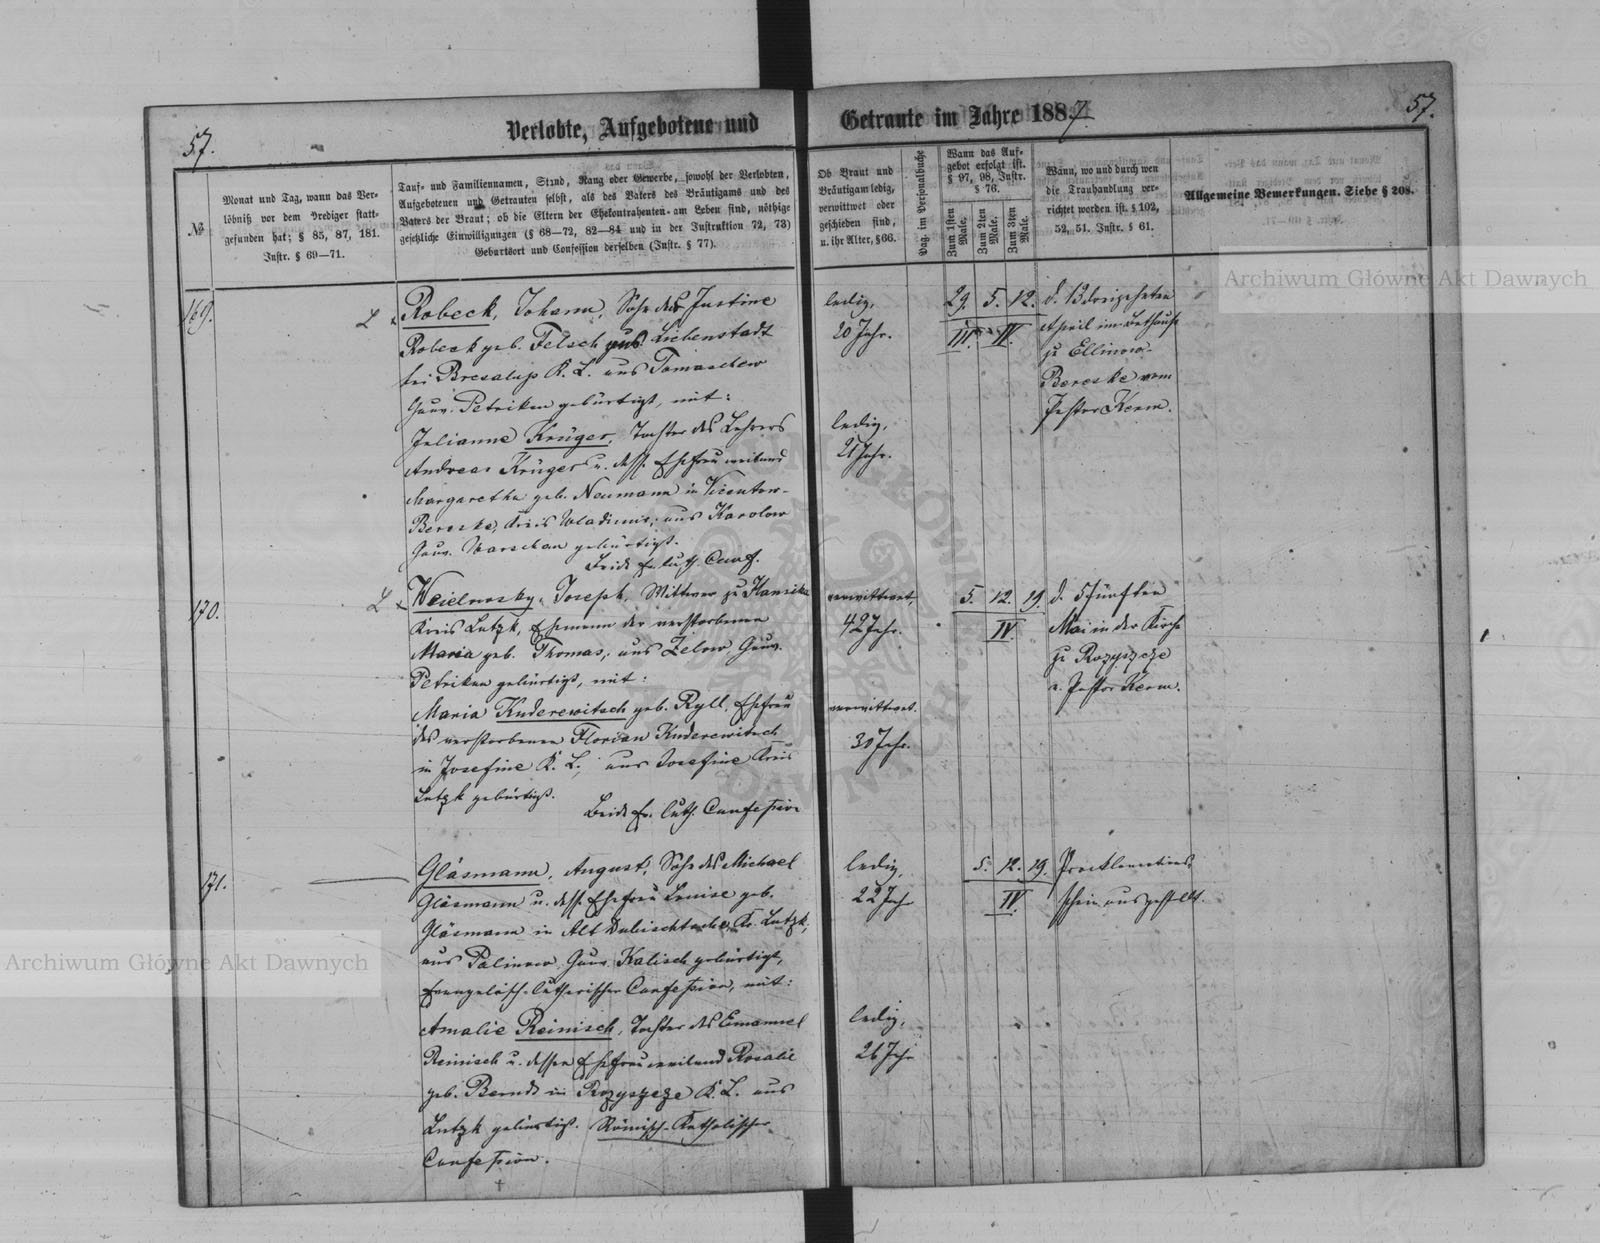 57.
Verlobte, Aufgebotene und
Getraute im Jahre 1887.
57.
№
Monat und Tag, wann das Ver-
löbniß vor dem Prediger statt-
gefunden hat; § 85, 87, 181.
Instr. § 69—71.
Tauf- und Familiennamen, Stand, Rang oder Gewerbe, sowohl der Verlobten,
Aufgebotenen und Getrauten selbst, als des Vaters des Bräutigams und des
Vaters der Braut; ob die Eltern der Ehekontrahenten am Leben sind, nöthige
gesetzliche Einwilligungen (§ 68—72, 82—84 und in der Instruktion 72, 73)
Geburtsort und Confession derselben (Instr. § 77).
Ob Braut und
Bräutigam ledig,
verwittwet oder
geschieden sind,
u. ihr Alter, § 66.
Pag. im Personalbuche
Wann das Auf-
gebot erfolgt ist.
§ 97, 98, Instr.
§ 76.
Zum 1sten Male.
Zum 2ten Male.
Zum 3ten Male.
Wann, wo und durch wen
die Trauhandlung ver-
richtet worden ist. § 102,
52, 51. Instr. § 61.
Allgemeine Bemerkungen. Siehe § 208.
169.
L x Robeck, Johann, Sohn der Justine
Robeck geb. Felsch aus Liebenstadt
bei K. L. aus Tomaschew
Gouv. Petrikau gebürtigt, mit:
Julianne Krüger, Tochter des Lehrers
Andreas Krüger u. dess. Ehefrau weiland
Margaretha geb. Neumann in
Bereske, Kreis Wladimir, aus Karolow
Gouv. Warschau gebürtigt.
Beide Ev. luth. Conf.
ledig,
20 Jahr.
ledig,
21 Jahr.
29. 5. 12.
III. IV.
d. 13 dreizehnten
April im Bethause
zu Ellinow-
Bereske vom
Pastor Kerm.
170.
L x Joseph, Wittwer zu
Kreis Lutzk, Ehemann der verstorbenen
Maria geb. Thomas, aus Zelow, Gouv.
Petrikau gebürtigt, mit:
Maria Kuderewitsch geb. Ryll, Ehefrau
des verstorbenen Florian Kuderewitsch
in Josefine K. L., aus Josefine Kreis
Lutzk gebürtigt.
Beide Ev. luth. Confession
verwittwet,
42 Jahr.
verwittwet.
30 Jahr.
5. 12. 19.
IV.
d. 5 fünften
Mai in der Kirche
zu Rozyszcze
v. Pastor Kerm.
171.
Gläsmann, August, Sohn des Michael
Gläsmann u. dess. Ehefrau Louise geb.
Gläsmann in Alt Kr. Lutzk,
aus Palinow, Gouv. Kalisch gebürtigt,
Evangelisch-lutherischer Confession, mit:
Amalie Reinisch, Tochter des Emanuel
Reinisch u. dessen Ehefrau weiland Rosalie
geb. Berndt in Rozyszcze K. L. aus
Lutzk gebürtigt. Römisch-Katholischer
Confession.
ledig,
22 Jahr
ledig,
26 Jahr
5. 12. 19.
IV.
Proklamations
schein ausgestellt.
Archiwum Główne Akt Dawnych
Archiwum Główne Akt Dawnych